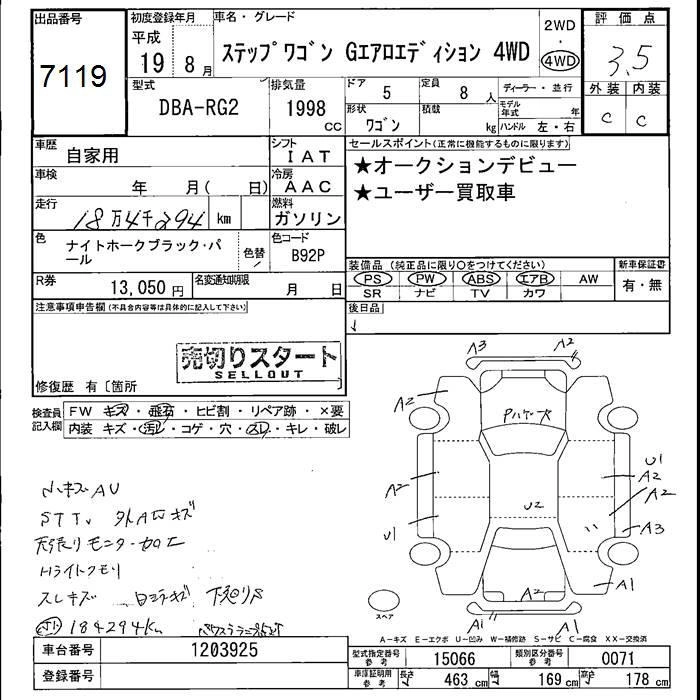 出品番号
7119
初度登録年月
平成
19 8月
車名・グレード
ステップワゴン Gエアロエディション 4WD
2WD
・
4WD
評価点
3.5
外装 内装
C C
型式
DBA-RG2
排気量
1998
cc
ドア
5
定員
8 人
形状
ワゴン
積載
kg
ディーラー・並行
モデル年式 年
ハンドル 左・右
車歴
自家用
シフト
IAT
車検
年 月( 日)
冷房
AAC
走行
18万4千294 km
燃料
ガソリン
色
ナイトホークブラック・パ
ール
色替
色コード
B92P
R券
13,050 円
名変通知期限
月 日
セールスポイント(正常に機能するものに限り)
★オークションデビュー
★ユーザー買取車
装備品(純正品に限り○をつけてください)
PS PW ABS エアB AW
SR ナビ TV カワ
新車保証書
有・無
後日品
注意事項申告欄(不具合内容等は具体的に記入して下さい)
売切りスタート
SELLOUT
修復歴 有〔箇所 〕
検査員記入欄
FW キズ・飛石・ヒビ割・リペア跡・×要
内装 キズ・汚レ・コゲ・穴・スレ・キレ・破レ
小キズAU
天張りモニター加工
Hライトクモリ
スレキズ
下廻りS
184294km
A3 A2
A2
A2
U1
U2
U1
A2
A2
A3
A1
A2
A1 A1
スペア
A−キズ E−エクボ U−凹み W−補修跡 S−サビ C−腐食 XX−交換済
車台番号
1203925
登録番号
型式指定番号
参考
15066
類別区分番号
参考
0071
車庫証明用
参考
長さ
463 cm
幅
169 cm
高さ
178 cm